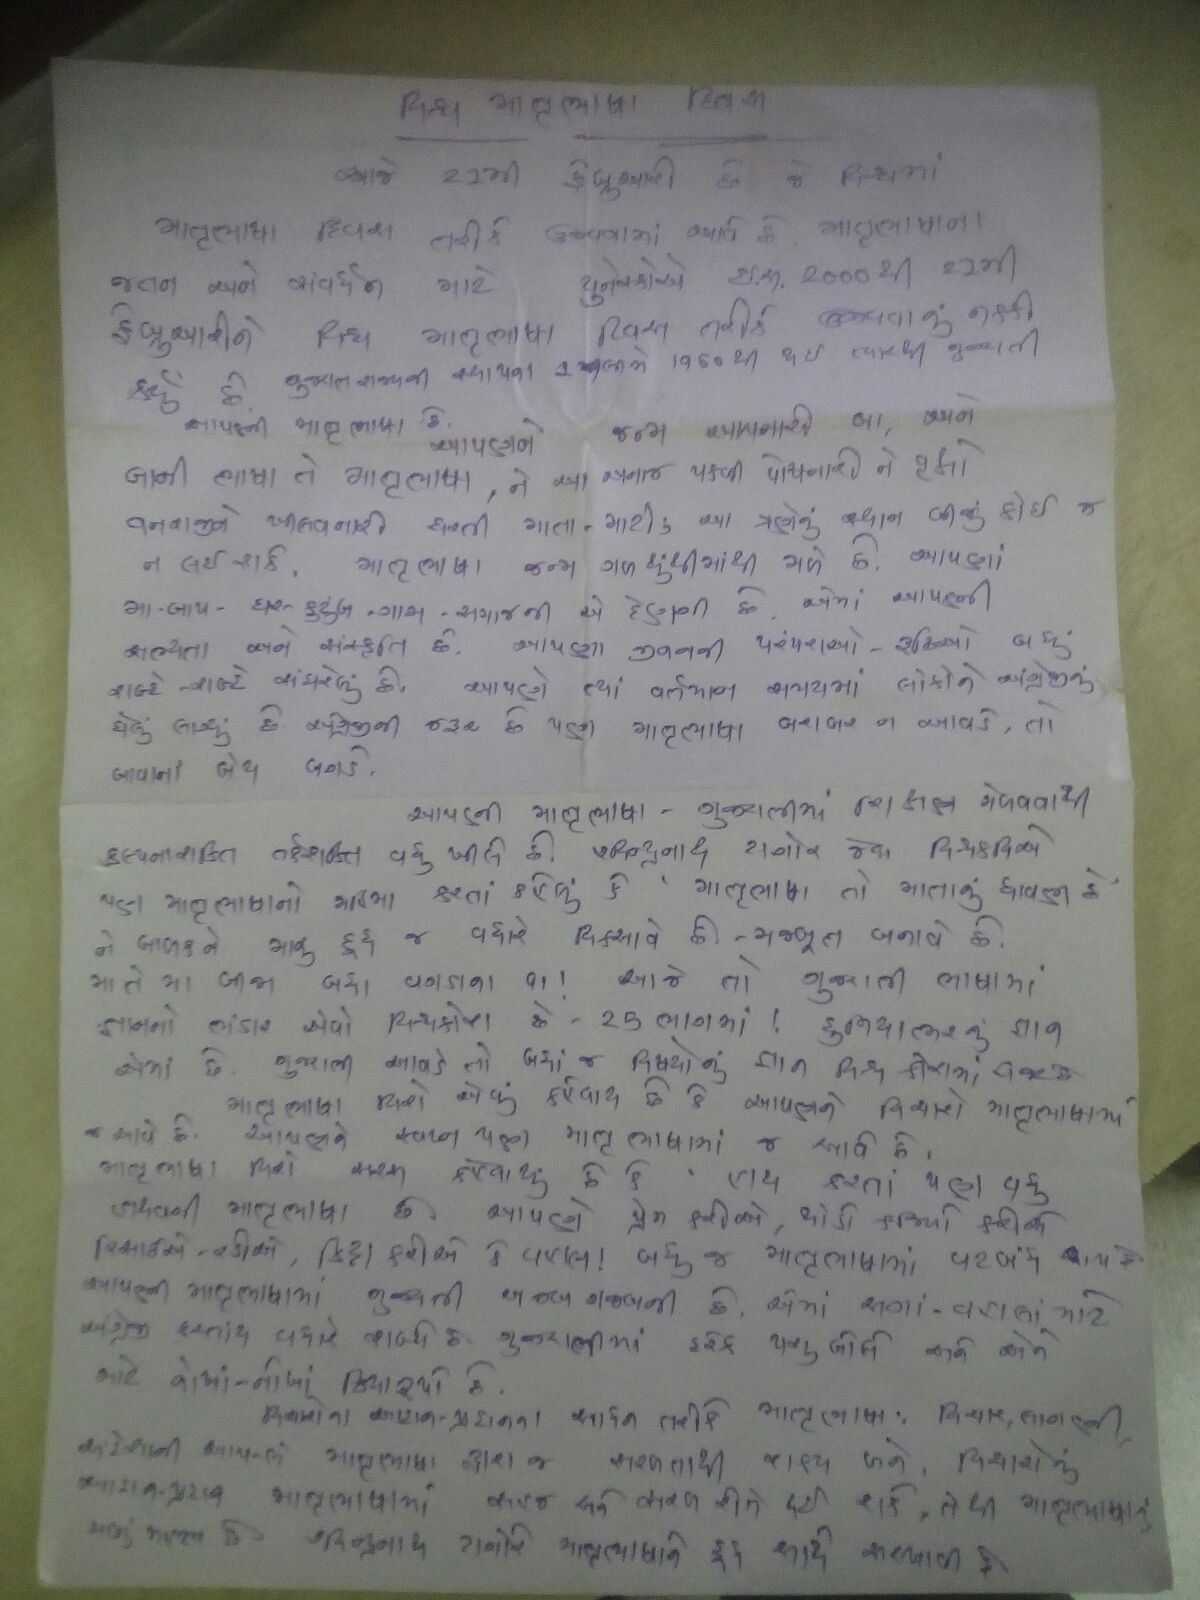 વિશ્વ માતૃભાષા દિવસ
આજે 21મી ફેબ્રુઆરી છે જે વિશ્વમાં
માતૃભાષા દિવસ તરીકે ઉજવવામાં આવે છે. માતૃભાષાના
જતન અને સંવર્ધન માટે યુનેસ્કોએ ઇ.સ. 2000થી 21મી
ફેબ્રુઆરીને વિશ્વ માતૃભાષા દિવસ તરીકે ઉજવવાનું નક્કી
કર્યું છે. ગુજરાત રાજ્યની સ્થાપના 1960થી થઈ ત્યારથી ગુજરાતી
આપણી માતૃભાષા છે.
આપણને જન્મ આપનારી બા, અને
બાની ભાષા તે માતૃભાષા, ને આ અનાજ પકવી પોષનારી ને વૃક્ષો
વનરાજીને ખીલવનારી ધરતી માતા-માટી; આ ત્રણેનું સ્થાન બીજું કોઈ જ
ન લઈ શકે. માતૃભાષા જન્મ ગળથુંથીમાંથી મળે છે. આપણાં
મા-બાપ-ઘર-કુટુંબ-ગામ-સમાજની એ દેણગી છે. એમાં આપણી
સભ્યતા અને સંસ્કૃતિ છે. આપણા જીવનની પરંપરાઓ-રૂઢિઓ બધું
શબ્દે-શબ્દે સંઘરેલું છે. આપણે ત્યાં વર્તમાન સમયમાં લોકોને અંગ્રેજીનું
ઘેલું લાગ્યું છે અંગ્રેજીની જરૂર છે પણ માતૃભાષા બરાબર ન આવડે, તો
બાવાનાં બેય બગડે.
આપણી માતૃભાષા - ગુજરાતીમાં શિક્ષણ મેળવવાથી
કલ્પનાશક્તિ તર્કશક્તિ વધુ ખીલે છે. રવિન્દ્રનાથ ટાગોર જેવા વિશ્વકવિએ
પણ માતૃભાષાનો મહિમા કરતાં કહેલું કે 'માતૃભાષા તો માતાનું ધાવણ છે'
ને બાળકને માનું દૂધ જ વધારે વિકસાવે છે - મજબૂત બનાવે છે.
મા તે મા બીજા બધા વગડાના વા! આજે તો ગુજરાતી ભાષામાં
જ્ઞાનનો ભંડાર એવો વિશ્વકોશ છે - 25 ભાગમાં! દુનિયાભરનું જ્ઞાન
એમાં છે. ગુજરાતી આવડે તો બધાં જ વિષયોનું જ્ઞાન વિશ્વ કોશમાં
માતૃભાષા વિશે એવું કહેવાય છે કે આપણને વિચારો માતૃભાષામાં
જ આવે છે. આપણને સ્વપ્ન પણ માતૃભાષામાં જ આવે છે.
માતૃભાષા વિશે સરસ કહેવાયું છે કે 'હાથ કરતાં પણ વધુ
માતૃભાષા છે. આપણે પ્રેમ કરીએ, થોડી કજિયો કરીએ
રિસાઈએ-રડીએ, કિટ્ટા કરીએ કે વહાલ! બધુ જ માતૃભાષામાં
આપણી માતૃભાષામાં ગુજરાતી અજબ ગજબની છે. એમાં સગાં-વહાલાં માટે
અંગ્રેજી કરતાંય વધારે શબ્દો છે. ગુજરાતીમાં દરેક પશુ બોલે અને એને
માટે નોખાં-નોખાં ક્રિયારૂપો છે.
વિચારોના આદાન-પ્રદાનના સાધન તરીકે માતૃભાષા: વિચાર, લાગણી,
સંદેશાની આપ-લે માતૃભાષા દ્વારા જ સરળતાથી શક્ય બને. વિચારોનું
આદાન-પ્રદાન માતૃભાષામાં સહજ અને સરળ રીતે થઈ શકે, તેથી માતૃભાષાનું
ઘણું મહત્વ છે. રવિન્દ્રનાથ ટાગોરે માતૃભાષાને દૂધ સાથે સરખાવી છે